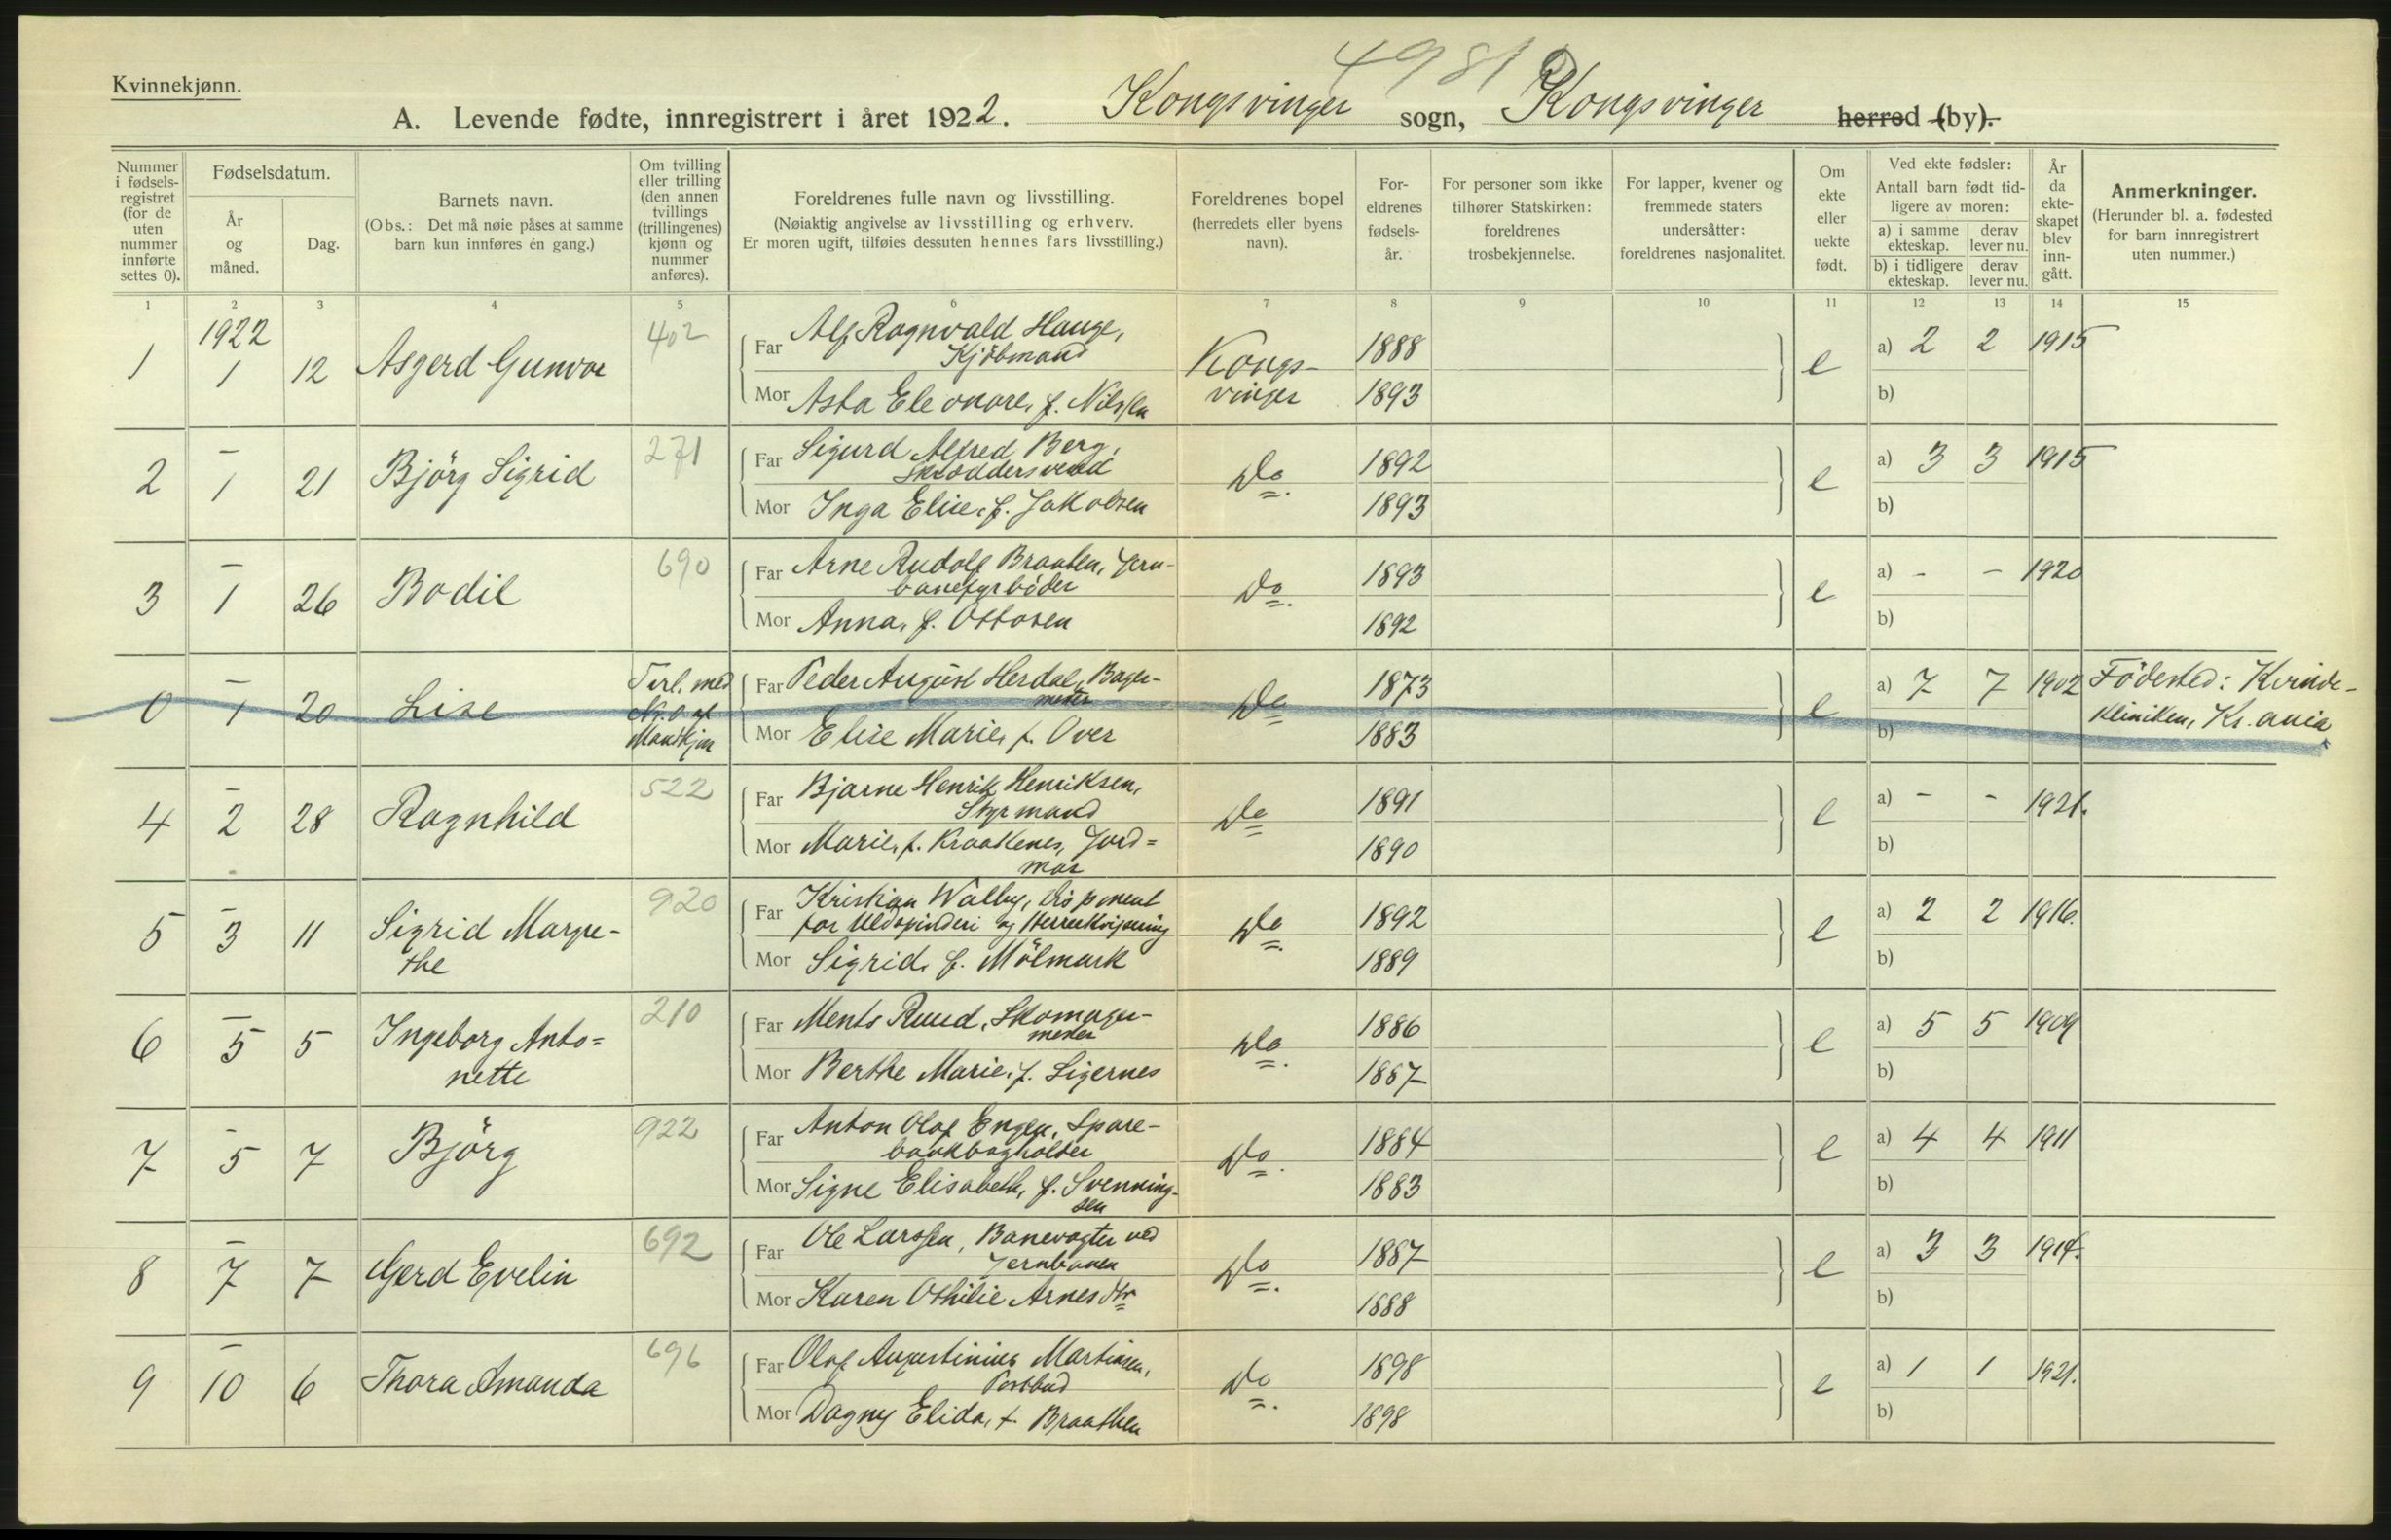 4981
Kvinnekjønn.
A. Levende fødte, innregistrert i året 1922. Kongsvinger sogn, Kongsvinger herred (by).
Nummer i fødsels-registret (for de uten nummer innførte settes 0).
Fødselsdatum.
År og måned.
Dag.
Barnets navn.
(Obs.: Det må nøie påses at samme barn kun innføres én gang.)
Om tvilling eller trilling (den annen tvillings (trillingenes) kjønn og nummer anføres).
Foreldrenes fulle navn og livsstilling.
(Nøiaktig angivelse av livsstilling og erhverv.
Er moren ugift, tilføies dessuten hennes fars livsstilling.)
Foreldrenes bopel
(herredets eller byens navn).
For-eldrenes fødsels-år.
For personer som ikke tilhører Statskirken: foreldrenes trosbekjennelse.
For lapper, kvener og fremmede staters undersåtter: foreldrenes nasjonalitet.
Om ekte eller uekte født.
Ved ekte fødsler:
Antall barn født tid-ligere av moren:
a) i samme ekteskap.
derav lever nu.
b) i tidligere ekteskap.
derav lever nu.
År da ekte-skapet blev inn-gått.
Anmerkninger.
(Herunder bl. a. fødested for barn innregistrert uten nummer.)
1 2 3 4 5 6 7 8 9 10 11 12 13 14 15
1922
1 1 12 Asgerd Gunvor 402
Far Alf Ragnvald Hauge,
Kjöbmand
1888
Mor Asta Eleonore, f. Nilssen
1893
Kongs-
vinger
e a) 2 2 1915
b)
2 1 21 Björg Sigrid 271
Far Sigurd Alfred Berg,
Skræddersvend
1892
Mor Inga Elise, f. Jakobsen
1893
Do.
e a) 3 3 1915
b)
3 1 26 Bodil 690
Far Arne Rudolf Braaten, Jern-
banefyrböder
1893
Mor Anna, f. Ottosen
1892
Do.
e a) - - 1920
b)
0 1 20 Lise Tvil. med
No. 0 af
Mandkjøn
Far Peder August Herdal, Bager-
mester
1873
Mor Elise Marie, f. Over
1883
Do
e a) 7 7 1902
b)
Födested: Kvinde-
kliniken, Kr.ania
4 2 28 Ragnhild 522
Far Bjarne Henrik Henriksen,
Styrmand
1891
Mor Marie, f. Kraakenes, Jord=
mor
1890
Do
e a) - - 1921.
b)
5 3 11 Sigrid Margre-
the 920
Far Kristian Walby, Disponent
for Uldspinderi og Herreekvipering
1892
Mor Sigrid, f. Mölmark
1889
Do.
e a) 2 2 1916.
b)
6 5 5 Ingeborg Anto=
nette 210
Far Ments Ruud, Skomager-
mester
1886
Mor Berthe Marie, f. Sigernes
1887
Do.
e a) 5 5 1909
b)
7 5 7 Björg 922
Far Anton Olaf Engen, Spare-
bankbogholder
1884
Mor Signe Elisabeth, f. Svenning-
sen
1883
Do.
e a) 4 4 1911
b)
8 7 7 Gerd Evelin 692
Far Ole Larssen, Banevogter ved
Jernbanen
1887
Mor Karen Othilie Arnesdtr
1888
Do.
e a) 3 3 1914.
b)
9 10 6 Thora Amanda 696
Far Olaf Augustinius Martinsen,
Postbud
1898
Mor Dagny Elida, f. Braathen
1898
Do.
e a) 1 1 1921.
b)